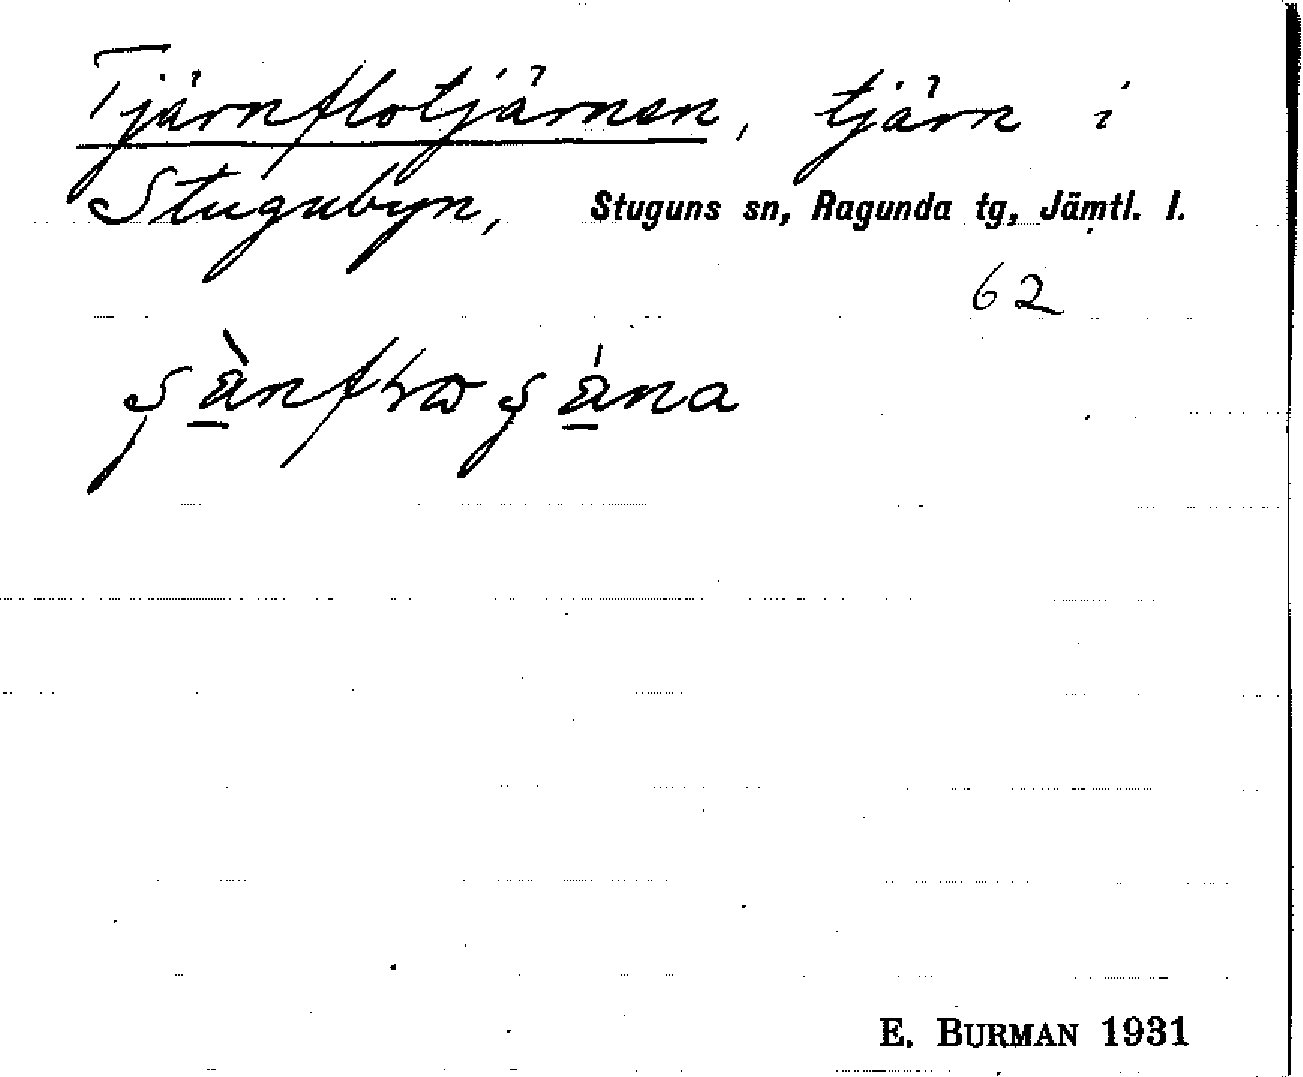 Tjärnflotjärnen, tjärn i
Stugubyn, Stuguns sn, Ragunda tg, Jämtl. l.
62
E. BURMAN 1931